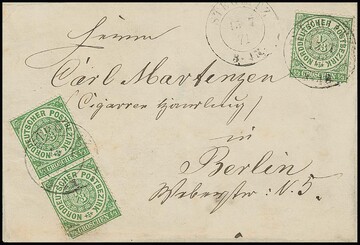 Herrn
Carl Martenzen
(Cigarren Handlung)
in
Berlin
Weberstr: N. 5.
71
NORDDEUTSCHER POSTBEZIRK
NORDDEUTSCHER POSTBEZIRK
NORDDEUTSCHER POSTBEZIRK